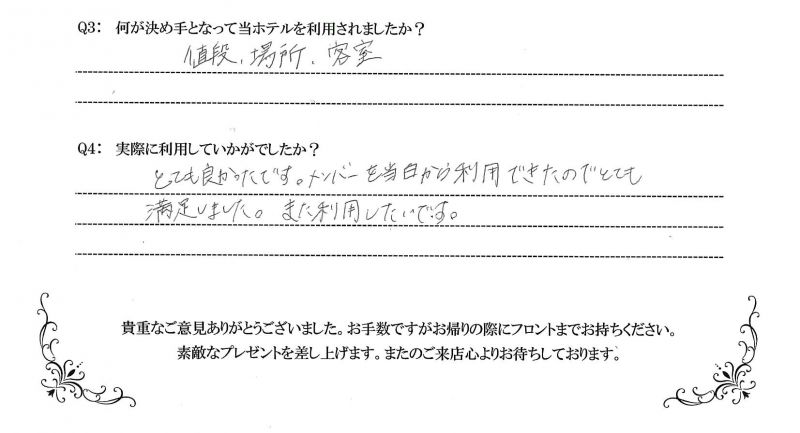 Q3: 何が決め手となって当ホテルを利用されましたか？
値段、場所、客室
Q4: 実際に利用していかがでしたか？
とても良かったです。メンバーを当日から利用できたのでとても
満足しました。また利用したいです。
貴重なご意見ありがとうございました。お手数ですがお帰りの際にフロントまでお持ちください。
素敵なプレゼントを差し上げます。またのご来店心よりお待ちしております。